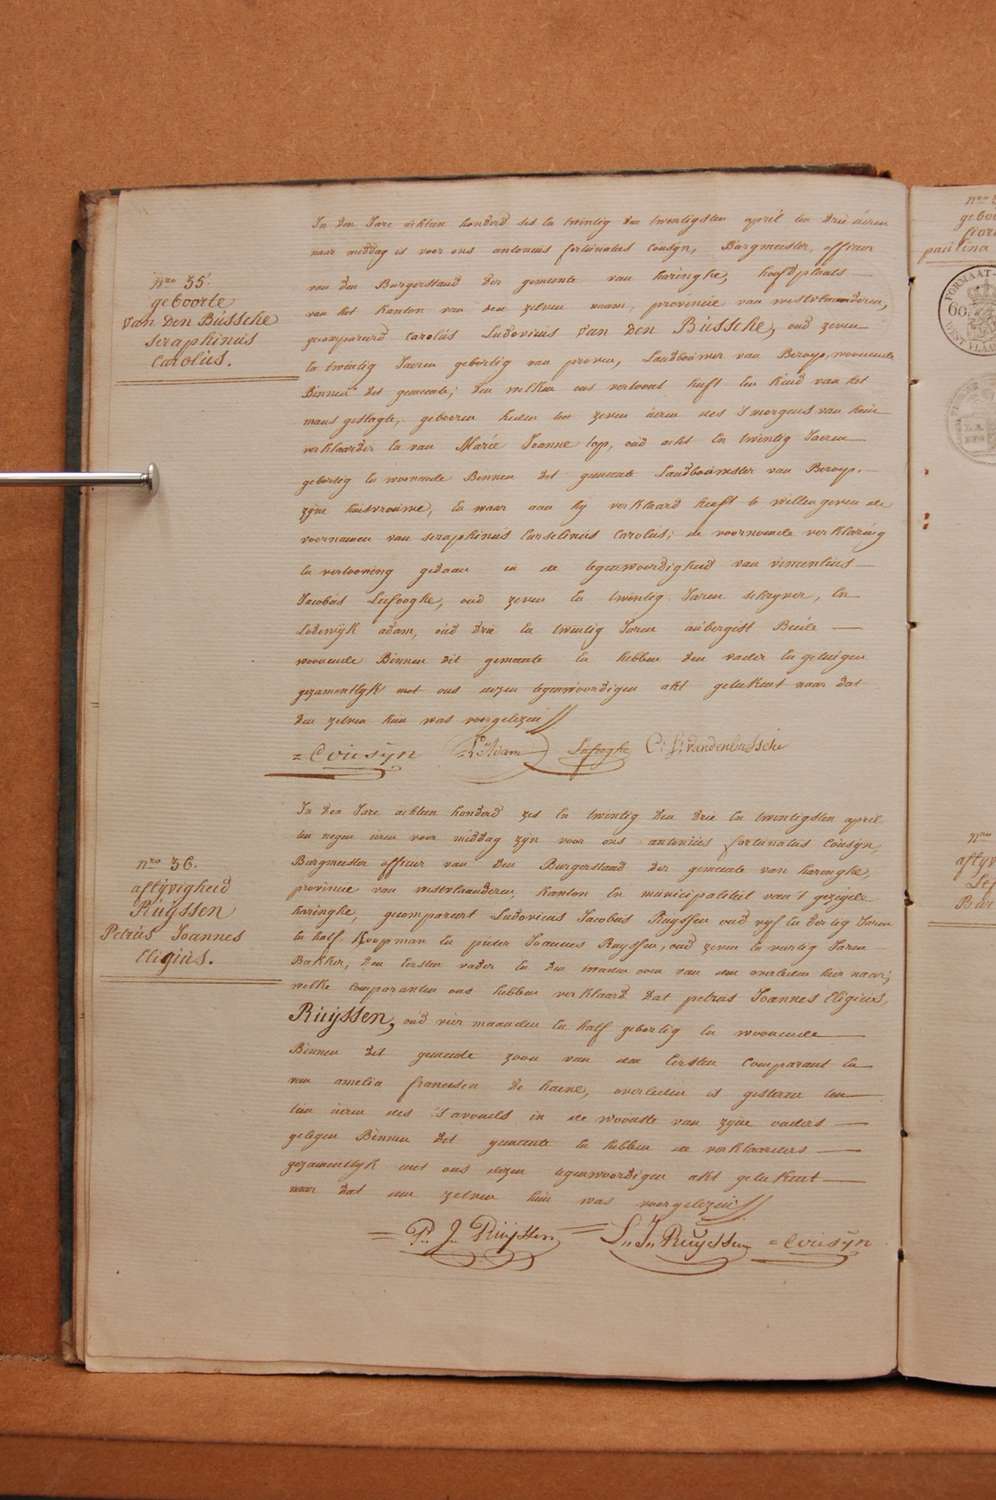 nro 35.
geboorte
Van Den Bùssche
seraphinùs
Carolùs.
In den Jare achtien honderd ses en twintig den twintigsten april ten drie ùeren
naer middag is voor ons antonius fortùnatus Cousyn, Burgmeister, officier
van den Bùrgerstand der gemeente van haringhe, hoofdplaats
van het kanton van den zelven naam, provincie van westvlaenderen,
gecompareerd Carolùs Ludovicus Van Den Bùssche, oud zeven
en twintig Jaeren gebortig van proven, Landbouwer van Beroep, woonende
Binnen dit gemeente; den welken ons vertoont heeft een kind van het
mans geslagte, geboren heden ten zeven ùeren des s'morgens van hem
verklaerder en van Marie Joanne top, oud acht en twintig Jaeren
gebortig en woonende Binnen dit gemeente Landboùwster van Beroep.
zyne hùisvroùwe, en waer aen hy verklaard heeft te willen geven de
voornamen van seraphinùs Carolùs; de voornoemde verklaring
en vertooning gedaen in de tegenwoordigheid van vincentius
Jacobùs Lefooghe, oud zeven en twintig Jaren schryver, en
Lodewÿk adam, oùd drie en twintig Jaren aùbergist Beide
woonende Binnen dit gemeente en hebben den vader en getuigen
gezamentlÿk met ons dezen tegenwoordigen akt geteekent naer dat
den zelven hùn was voorgelezen
= Coùsÿn L: Adam Lefooghe C: L: vandenbùssche
nro 36.
aflÿvigheid
Rùÿssen
Petrùs Joannes
Eligiùs.
In den Jare achtien honderd zes en twintig den drie en twintigsten april
ten negen ùren voor middag zÿn voor ons antoniùs fortùnatus Cousyn,
Burgmeister officier van den Burgerstand der gemeente van haringhe,
provincie van westvlaanderen, kanton en municipaliteit van't gezegde
haringhe, gecompareert Ludovicus Jacobus Ruyssen oud vyf en dertig Jaren
en half Koopman en pieter Joannes Ruyssen, oud zeven en veertig Jaren
Bakker, den eersten vader en den tweeden oom van den overleden hier naer;
welke comparanten ons hebben verklaard dat petrus Joannes Eligiùs,
Rùÿssen, oud vier maanden en half gebortig en woonende
Binnen dit gemeente zoon van den eersten Comparant en
van amelia francisca De haene, overleden is gisteren ten
tien ùeren des s'avonds in de woonste van zÿne ouders
gelegen Binnen dit gemeente en hebben de verklaerders
gezamentlÿk met ons dezen tegenwoordigen akt geteekent
naer dat den zelven hùn was voorgelezen
= P: J: Rùÿssen = L: J: Rùÿssen = Coùsÿn
FORMAAT
60
WEST VLAA
nro
geboo
paulina
nro
aflÿv